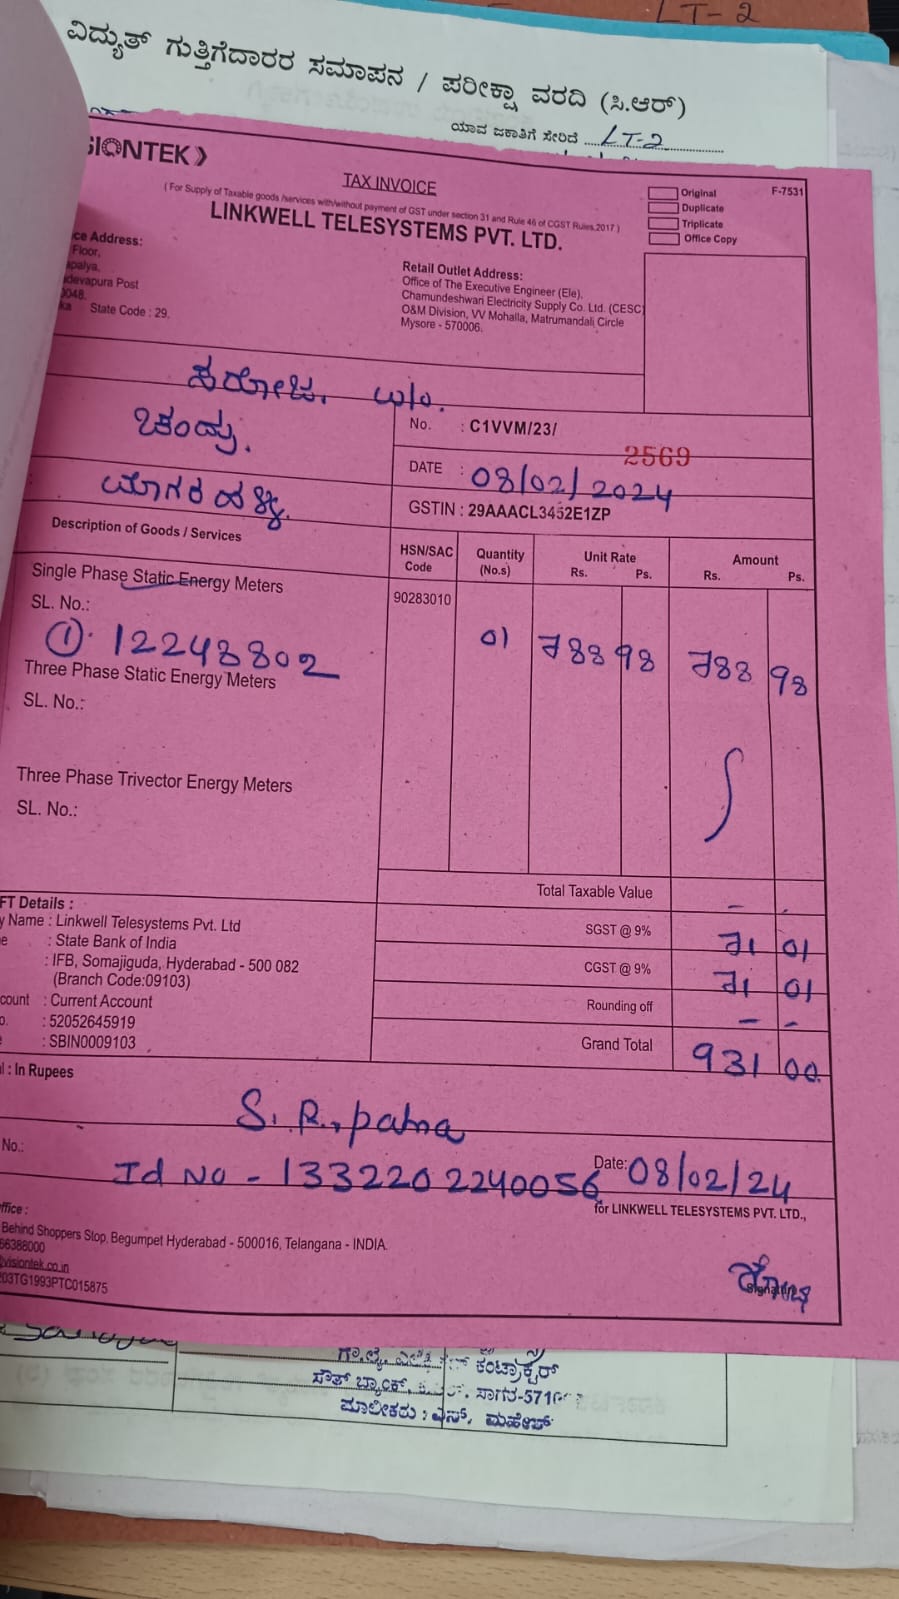 LT-2
ವಿದ್ಯುತ್ ಗುತ್ತಿಗೆದಾರರ ಸಮಾಪನ / ಪರೀಕ್ಷಾ ವರದಿ (ಸಿ.ಆರ್)
ಯಾವ ಜಕಾತಿಗೆ ಸೇರಿದೆ LT-2
SIONTEK
TAX INVOICE
( For Supply of Taxable goods /services with/without payment of GST under section 31 and Rule 46 of CGST Rules,2017 )
LINKWELL TELESYSTEMS PVT. LTD.
Original
Duplicate
Triplicate
Office Copy
F-7531
ce Address:
Floor,
apalya,
devapura Post
0048.
ka State Code : 29.
Retail Outlet Address:
Office of The Executive Engineer (Ele).
Chamundeshwari Electricity Supply Co. Ltd. (CESC)
O&M Division, VV Mohalla, Matrumandali Circle
Mysore - 570006.
ಸರೋಜ. w/o.
ಚಂದ್ರು.
ಮಾಗರಹಳ್ಳಿ.
No. : C1VVM/23/ 2569
DATE : 08/02/2024
GSTIN : 29AAACL3452E1ZP
Description of Goods / Services
HSN/SAC Code
Quantity (No.s)
Unit Rate Rs. Ps.
Amount Rs. Ps.
Single Phase Static Energy Meters
90283010
SL. No.:
① 12248802
01 788 98 788 98
Three Phase Static Energy Meters
SL. No.:
Three Phase Trivector Energy Meters
SL. No.:
Total Taxable Value - .
SGST @ 9% 71 01
CGST @ 9% 71 01
Rounding off - -
Grand Total 931 00.
FT Details :
y Name : Linkwell Telesystems Pvt. Ltd
e : State Bank of India
: IFB, Somajiguda, Hyderabad - 500 082
(Branch Code:09103)
count : Current Account
o. : 52052645919
e : SBIN0009103
l : In Rupees
S. R. patna
No.:
Id NO - 1332202240056
Date: 08/02/24
for LINKWELL TELESYSTEMS PVT. LTD.,
ffice :
Behind Shoppers Stop, Begumpet Hyderabad - 500016, Telangana - INDIA.
66388000
visiontek.co.in
03TG1993PTC015875
ಕಂಟ್ರಾಕ್ಟರ್
ಸೌತ್ ಬ್ಯಾಂಕ್,
ಮಾಲೀಕರು : ಎಸ್. ಮಹೇಶ್